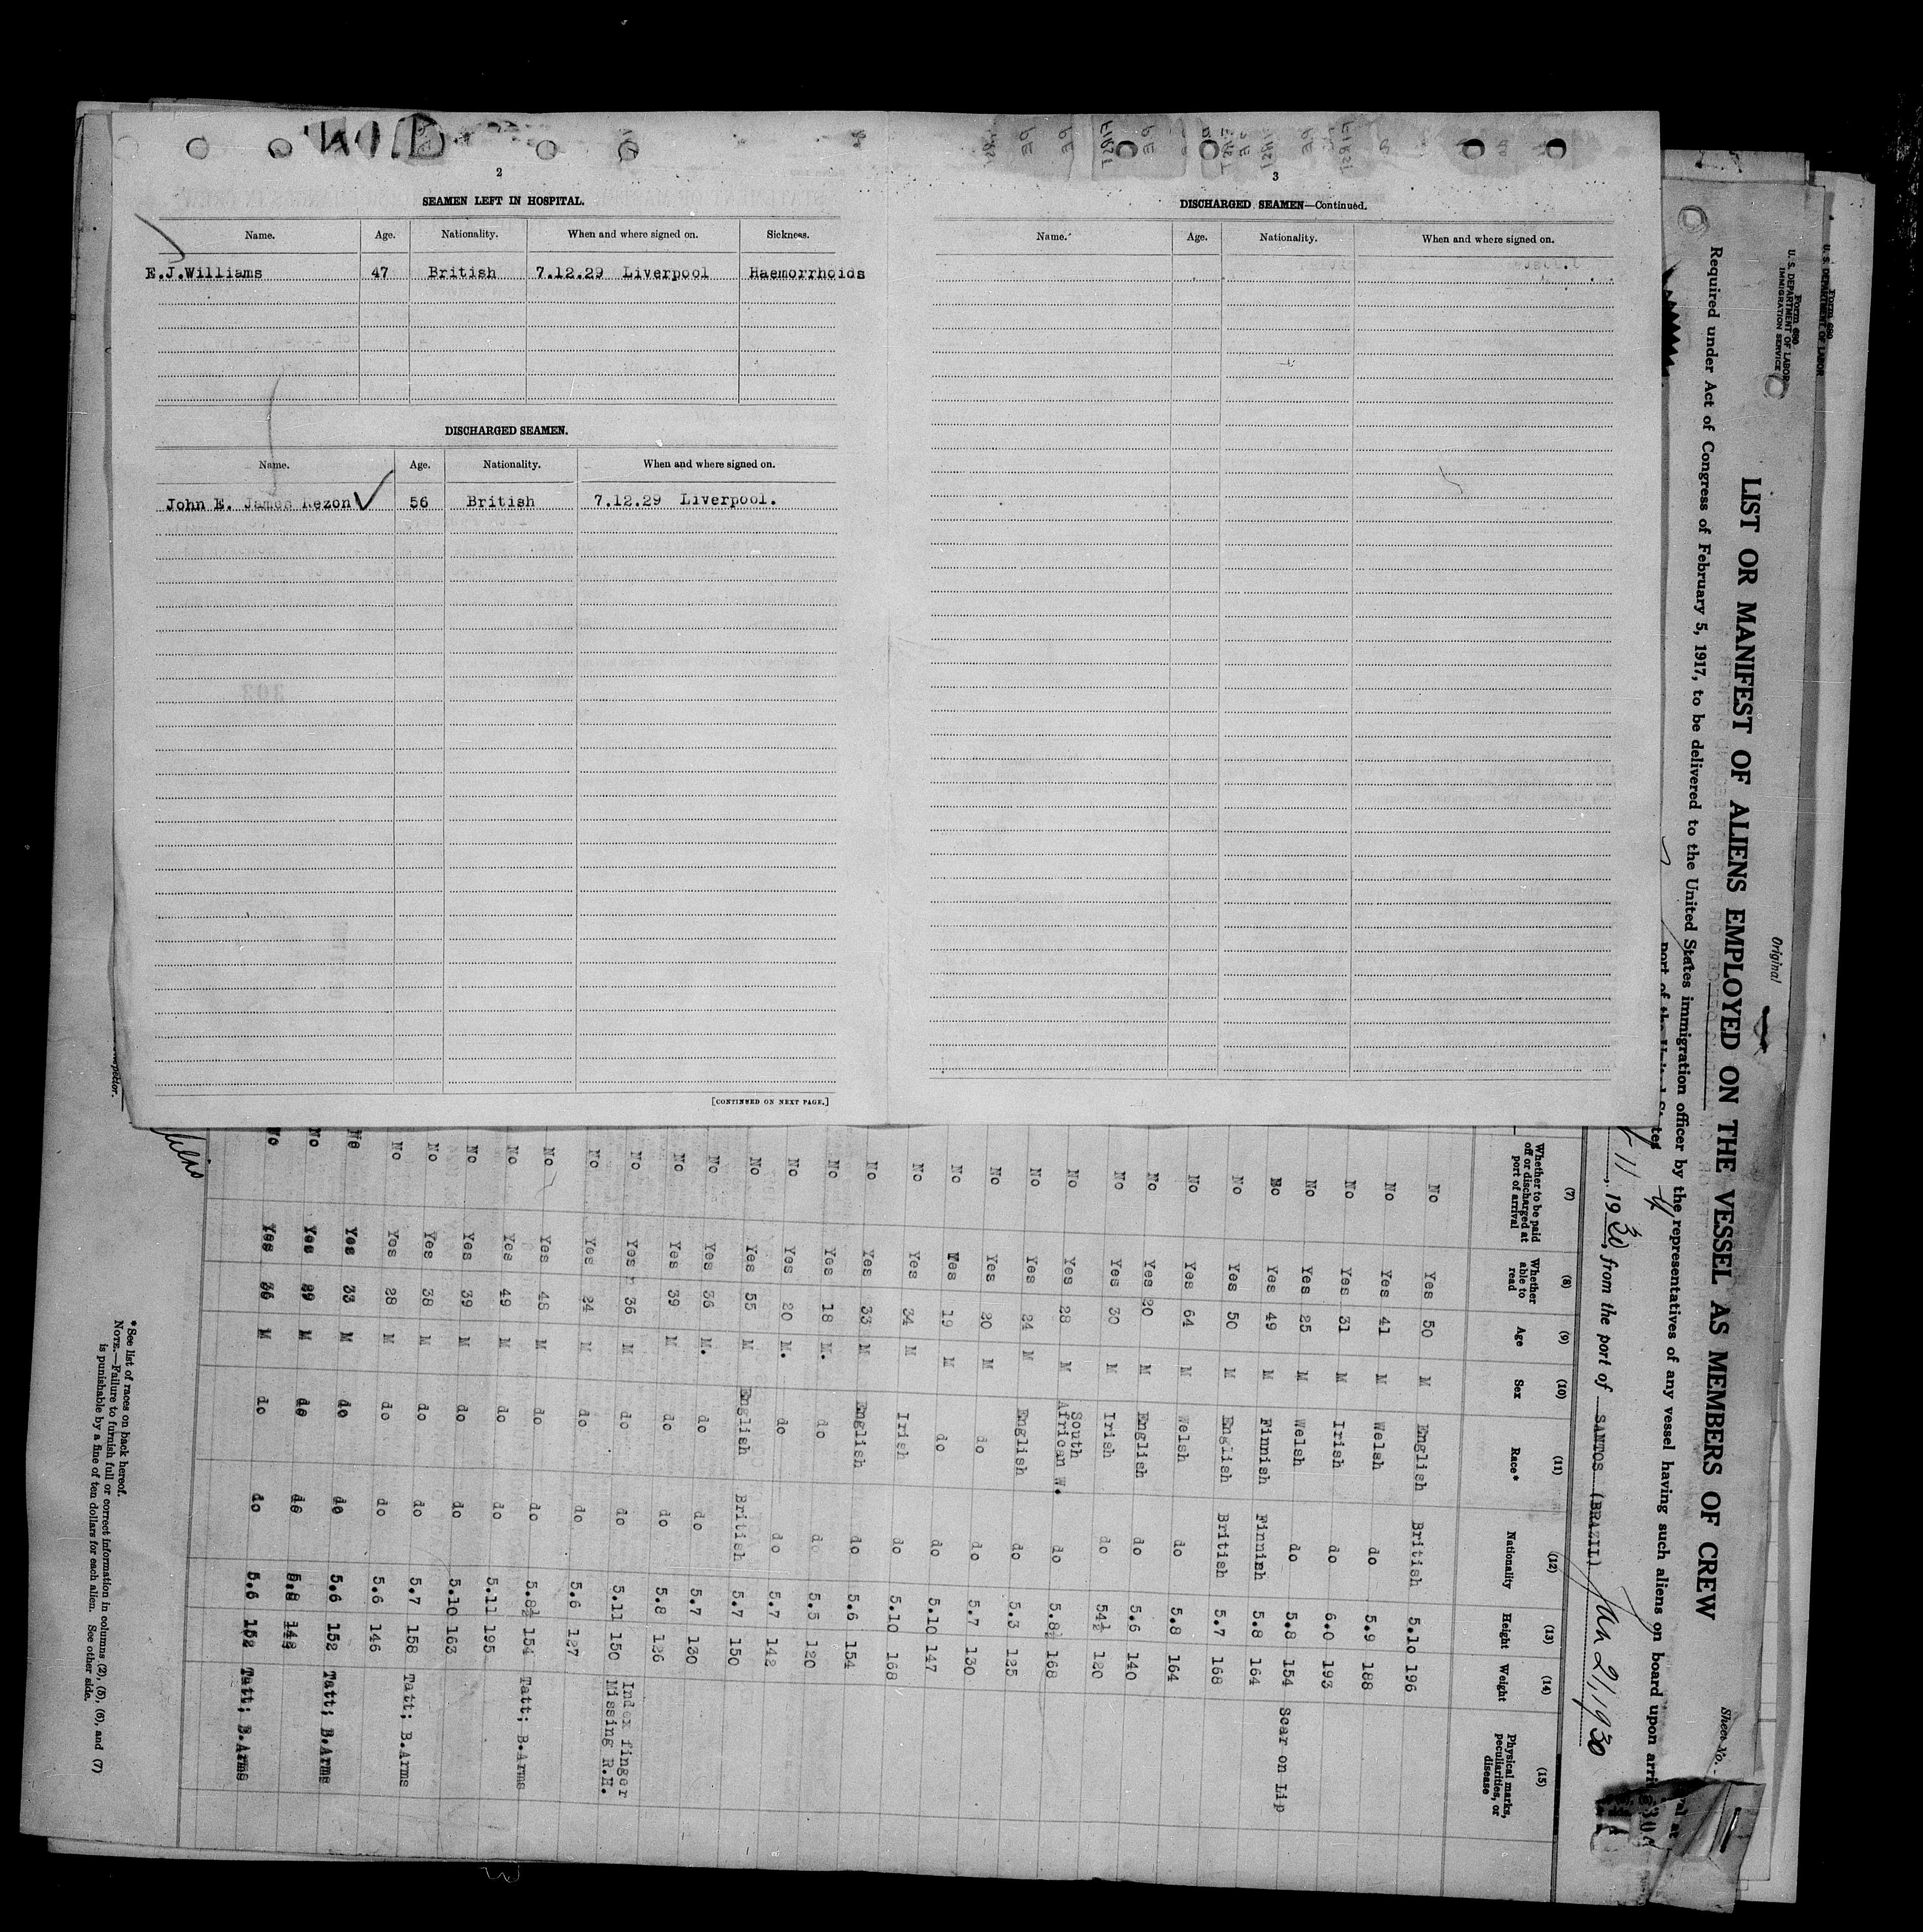 2
SEAMEN LEFT IN HOSPITAL.
Name. Age. Nationality. When and where signed on. Sickness.
E.J.Williams 47 British 7.12.29 Liverpool Haemorrhoids
DISCHARGED SEAMEN.
Name. Age. Nationality. When and where signed on.
John E. James Rezon 56 British 7.12.29 Liverpool.
[CONTINUED ON NEXT PAGE.]
3
DISCHARGED SEAMEN—Continued.
Name. Age. Nationality. When and where signed on.
Form 680
U. S. DEPARTMENT OF LABOR
Form 680
U. S. DEPARTMENT OF LABOR
IMMIGRATION SERVICE
Original
Sheet No.
LIST OR MANIFEST OF ALIENS EMPLOYED ON THE VESSEL AS MEMBERS OF CREW
Required under Act of Congress of February 5, 1917, to be delivered to the United States immigration officer by the representatives of any vessel having such aliens on board upon arrival at
port of the United States
11, 1930, from the port of SANTOS (BRAZIL) Jan 21, 1930
(7) (8) (9) (10) (11) (12) (13) (14) (15)
Whether to be paid off or discharged at port of arrival Whether able to read Age Sex Race* Nationality Height Weight Physical marks, peculiarities, or disease
No Yes 50 M English British 5.10 196
No Yes 41 M Welsh do 5.9 188
No Yes 31 M Irish do 6.0 193
No Yes 25 M Welsh do 5.8 154 Scar on Lip
No Yes 49 M Finnish Finnish 5.8 164
No Yes 50 M English British 5.7 168
No Yes 64 M Welsh do 5.8 164
No Yes 20 M English do 5.6 140
No Yes 30 M Irish do 54½ 120
No Yes 28 M South African W. do 5.8½ 168
No Yes 24 M English do 5.3 125
No Yes 20 M do do 5.7 130
No Yes 19 M do do 5.10 147
No Yes 34 M Irish do 5.10 168
No Yes 33 M English do 5.6 154
No Yes 18 M. do do 5.5 120
No Yes 20 M. do do 5.7 142
No Yes 55 M English British 5.7 150
No Yes 36 M. do do 5.7 130
No Yes 39 M do do 5.8 126
No Yes 36 M do do 5.11 150 Index finger Missing R.H.
No Yes 24 M do do 5.6 127
No Yes 48 M do do 5.8½ 154 Tatt; B.Arms
No Yes 49 M do do 5.11 195
No Yes 39 M do do 5.10 163
No Yes 38 M do do 5.7 158 Tatt; B.Arms
No Yes 28 M do do 5.6 146
No Yes 33 M do do 5.6 152 Tatt; B.Arms
No Yes 29 M do do 5.8 142
No Yes 36 M do do 5.6 152 Tatt; B.Arms
*See list of races on back hereof.
NOTE.—Failure to furnish full or correct information in columns (2), (5), (6), and (7)
is punishable by a fine of ten dollars for each alien. See other side.